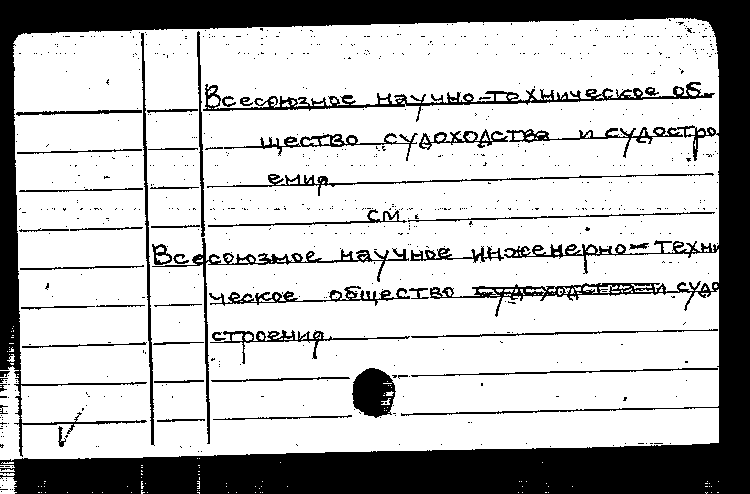 Всесоюзное научно-техническое об-
щество судоходства и судостро
ения.
см.
Всесоюзное научное инженерно-техни
ческое общество судоходства и судо
строения.